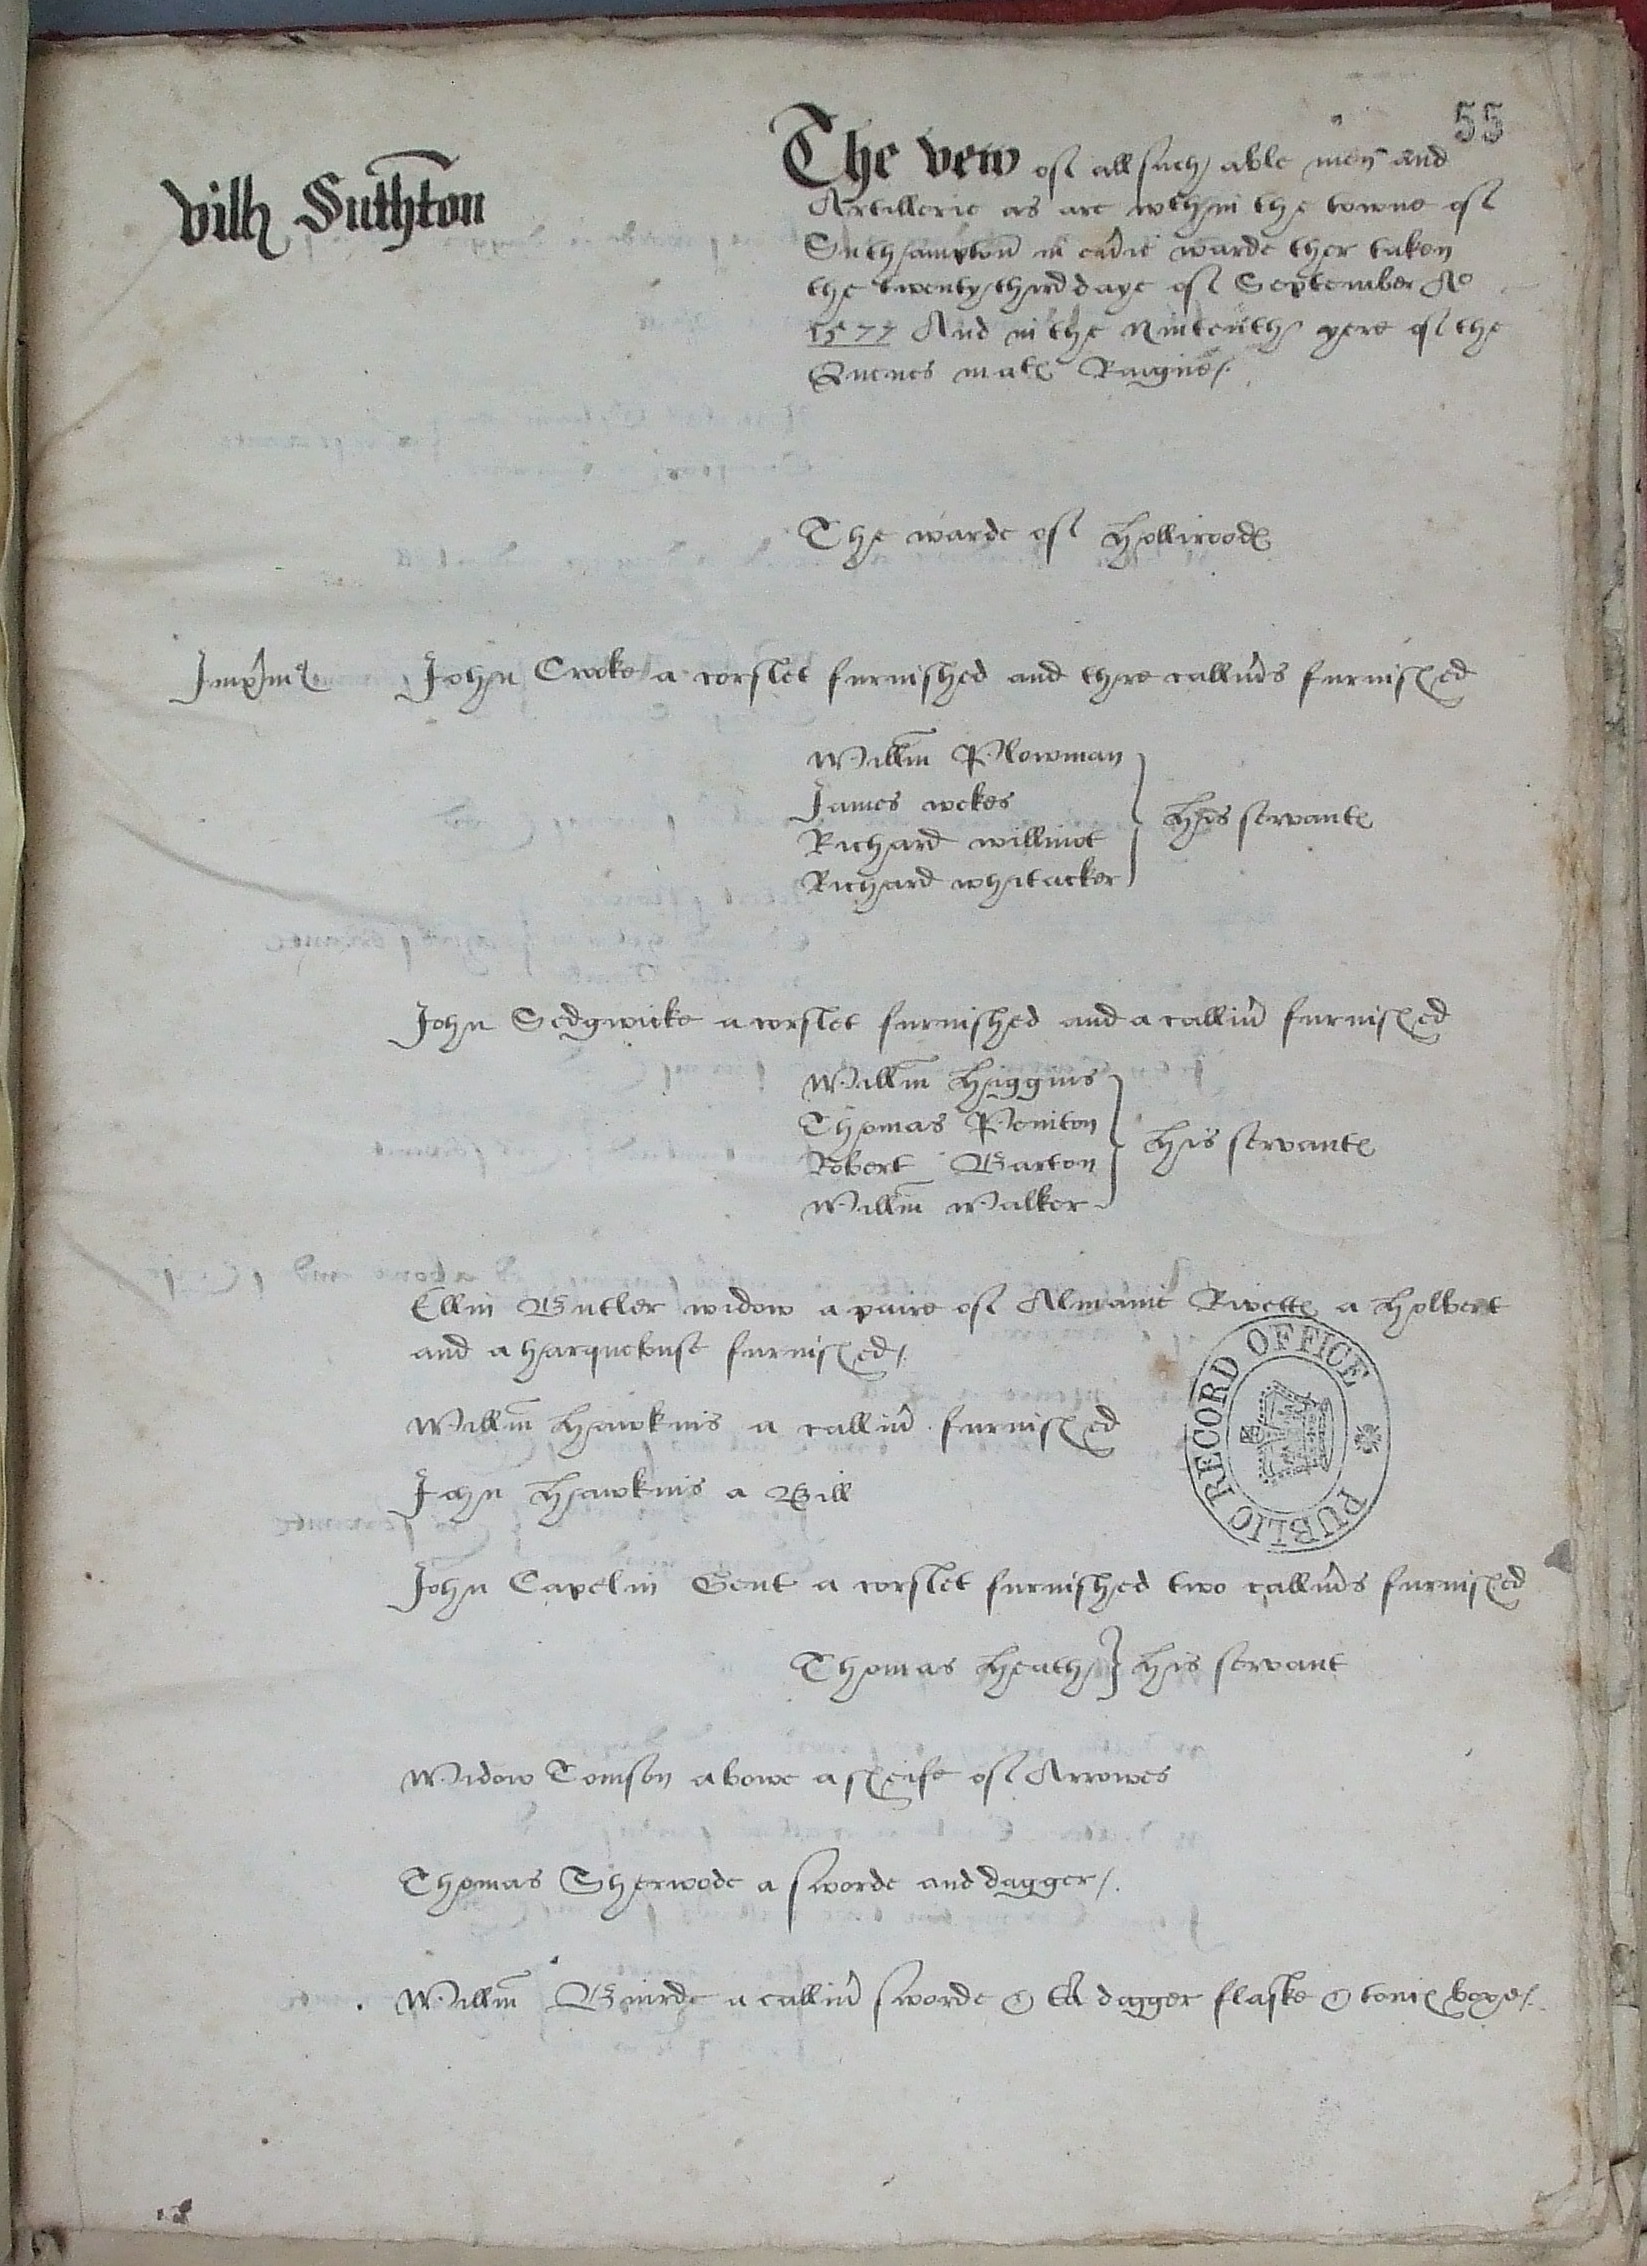 55
Villa Suthton
The vew of all such able men and
Artillerie as are wthin the towne of
Suthampton in evrie warde ther taken
the twenty third daye of September Ao
1577 And in the Ninteuth yere of the
Quenes mats Raigne/.
The warde of Holliroods
Imprims John Crooke a corslet furnished and thre callivrs furnished
Willm Plowman
James wekes
Richard willmot
Richard whitacker
his servants
John Sedgwicke a corslet furnished and a callivr furnished
Willm Higgins
Thomas Peniton
Robert Barton
Willm Walker
his servants
Ellin Butler widow a paire of Almanie Rivetts a Holbert
and a harquebuse furnished/.
Willm Hawkins a callivr furnished
John Hawkins a Bill
PUBLIC RECORD OFFICE
John Capelin Gent a corslet furnished two callivrs furnished
Thomas Heath his servant
Widow Tomson a bowe a sheife of Arrowes
Thomas Sherwode a sworde and dagger/.
Willm a callivr sworde & dagger flaske & toutch boxe/.